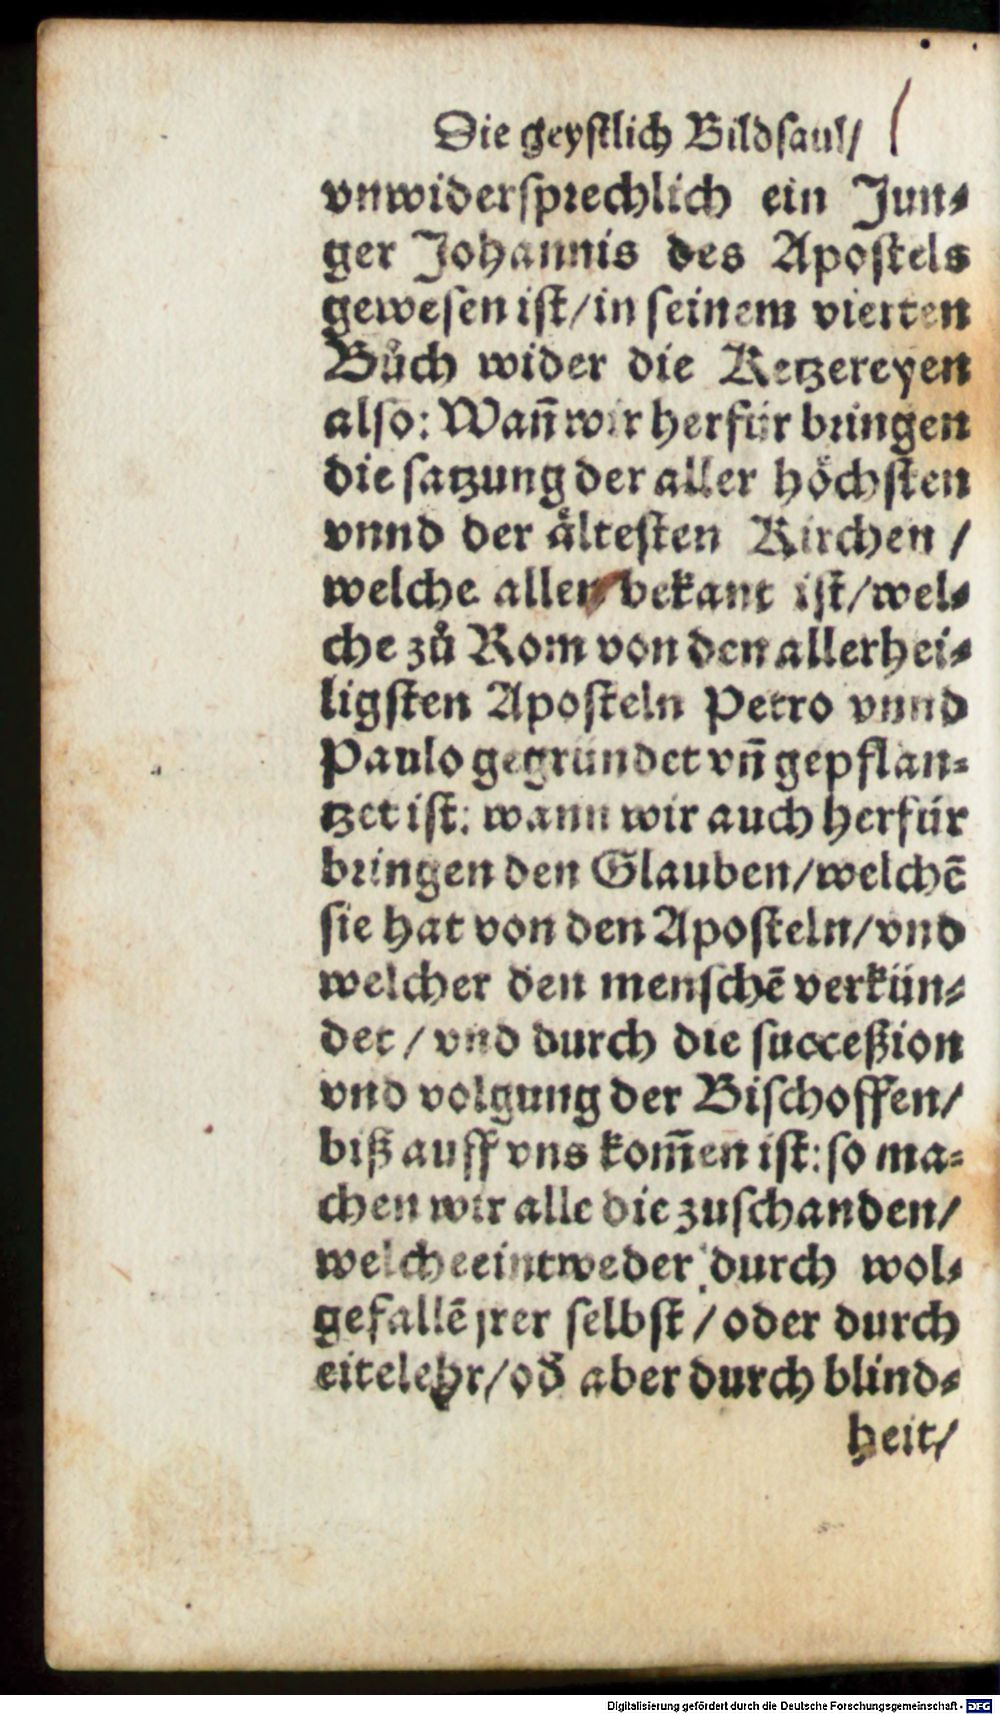 Die geystlich Bildsaul/
vnwidersprechlich ein Jun⸗
ger Johannis des Apostels
gewesen ist/in seinem vierten
Bůch wider die Ketzereyen
also: Wañ wir herfür bringen
die satzung der aller höchsten
vnnd der ältesten Kirchen /
welche allen bekant ist/wel⸗
che zů Rom von den allerhei⸗
ligsten Aposteln Petro vnnd
Paulo gegründet vñ gepflan⸗
tzet ist: wann wir auch herfür
bringen den Glauben/welchē
sie hat von den Aposteln/vnd
welcher den menschē verkün⸗
det / vnd durch die succeßion
vnd volgung der Bischoffen/
biß auff vns kom̃en ist: so ma⸗
chen wir alle die zuschanden/
welche eintweder durch wol⸗
gefallē jrer selbst / oder durch
eitelehr/od̃ aber durch blind⸗
heit/
Digitalisierung gefördert durch die Deutsche Forschungsgemeinschaft - DFG